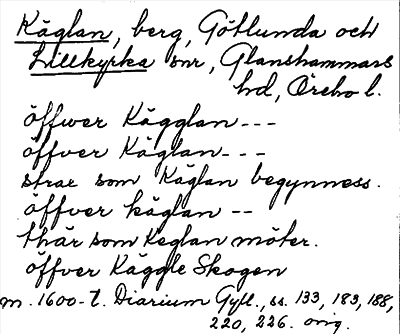 Käglan, berg, Götlunda och
Lillkyrka snr, Glanshammars
hd, Örebro l.
öffwer Kägglan ---
öffver Käglan ---
strax som Käglan begynness.
öffver käglan --
thär som Keglan möter.
öffver Käggle Skogen
m. 1600-t. Diarium Gyll., ss. 133, 183, 188,
220, 226. orig.